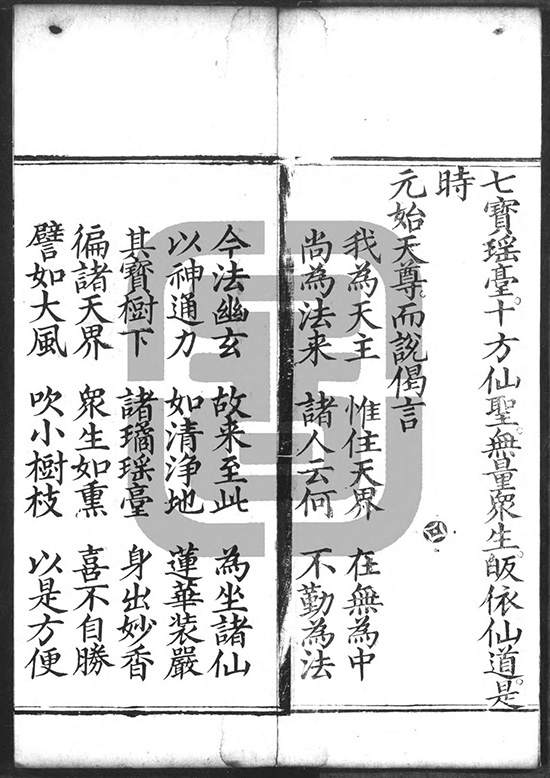 七寶瑶臺十方仙聖無量衆生皈依仙道是
時
元始天尊而說偈言
我為天主　惟住天界　在無為中
尚為法来　諸人云何　不勤為法
今法幽玄　故来至此　為坐諸仙
以神通力　如清淨地　蓮華装嚴
其寳樹下　諸璚瑶臺　身出妙香
徧諸天界　衆生如熏　喜不自勝
譬如大風　吹小樹枝　以是方便